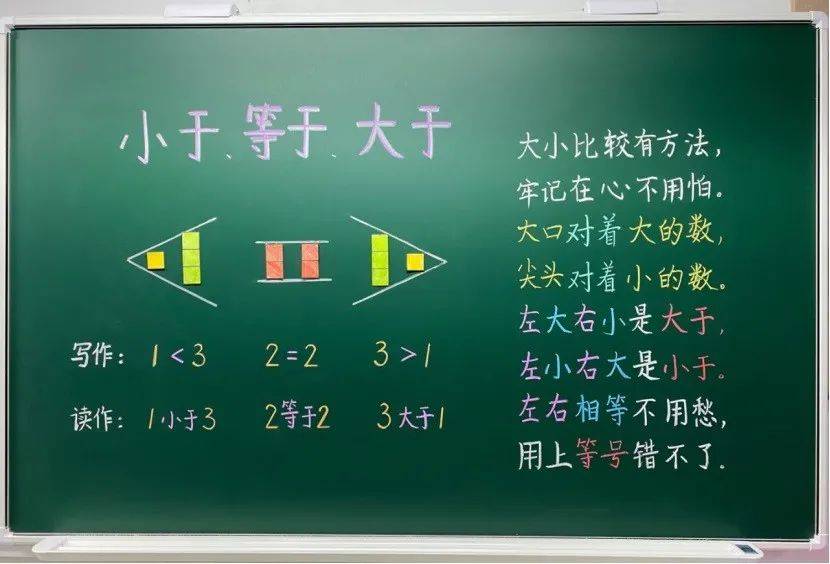 小于、等于、大于
写作：1<3 2=2 3>1
读作：1小于3 2等于2 3大于1
大小比较有方法，
牢记在心不用怕。
大口对着大的数，
尖头对着小的数。
左大右小是大于，
左小右大是小于。
左右相等不用愁，
用上等号错不了.